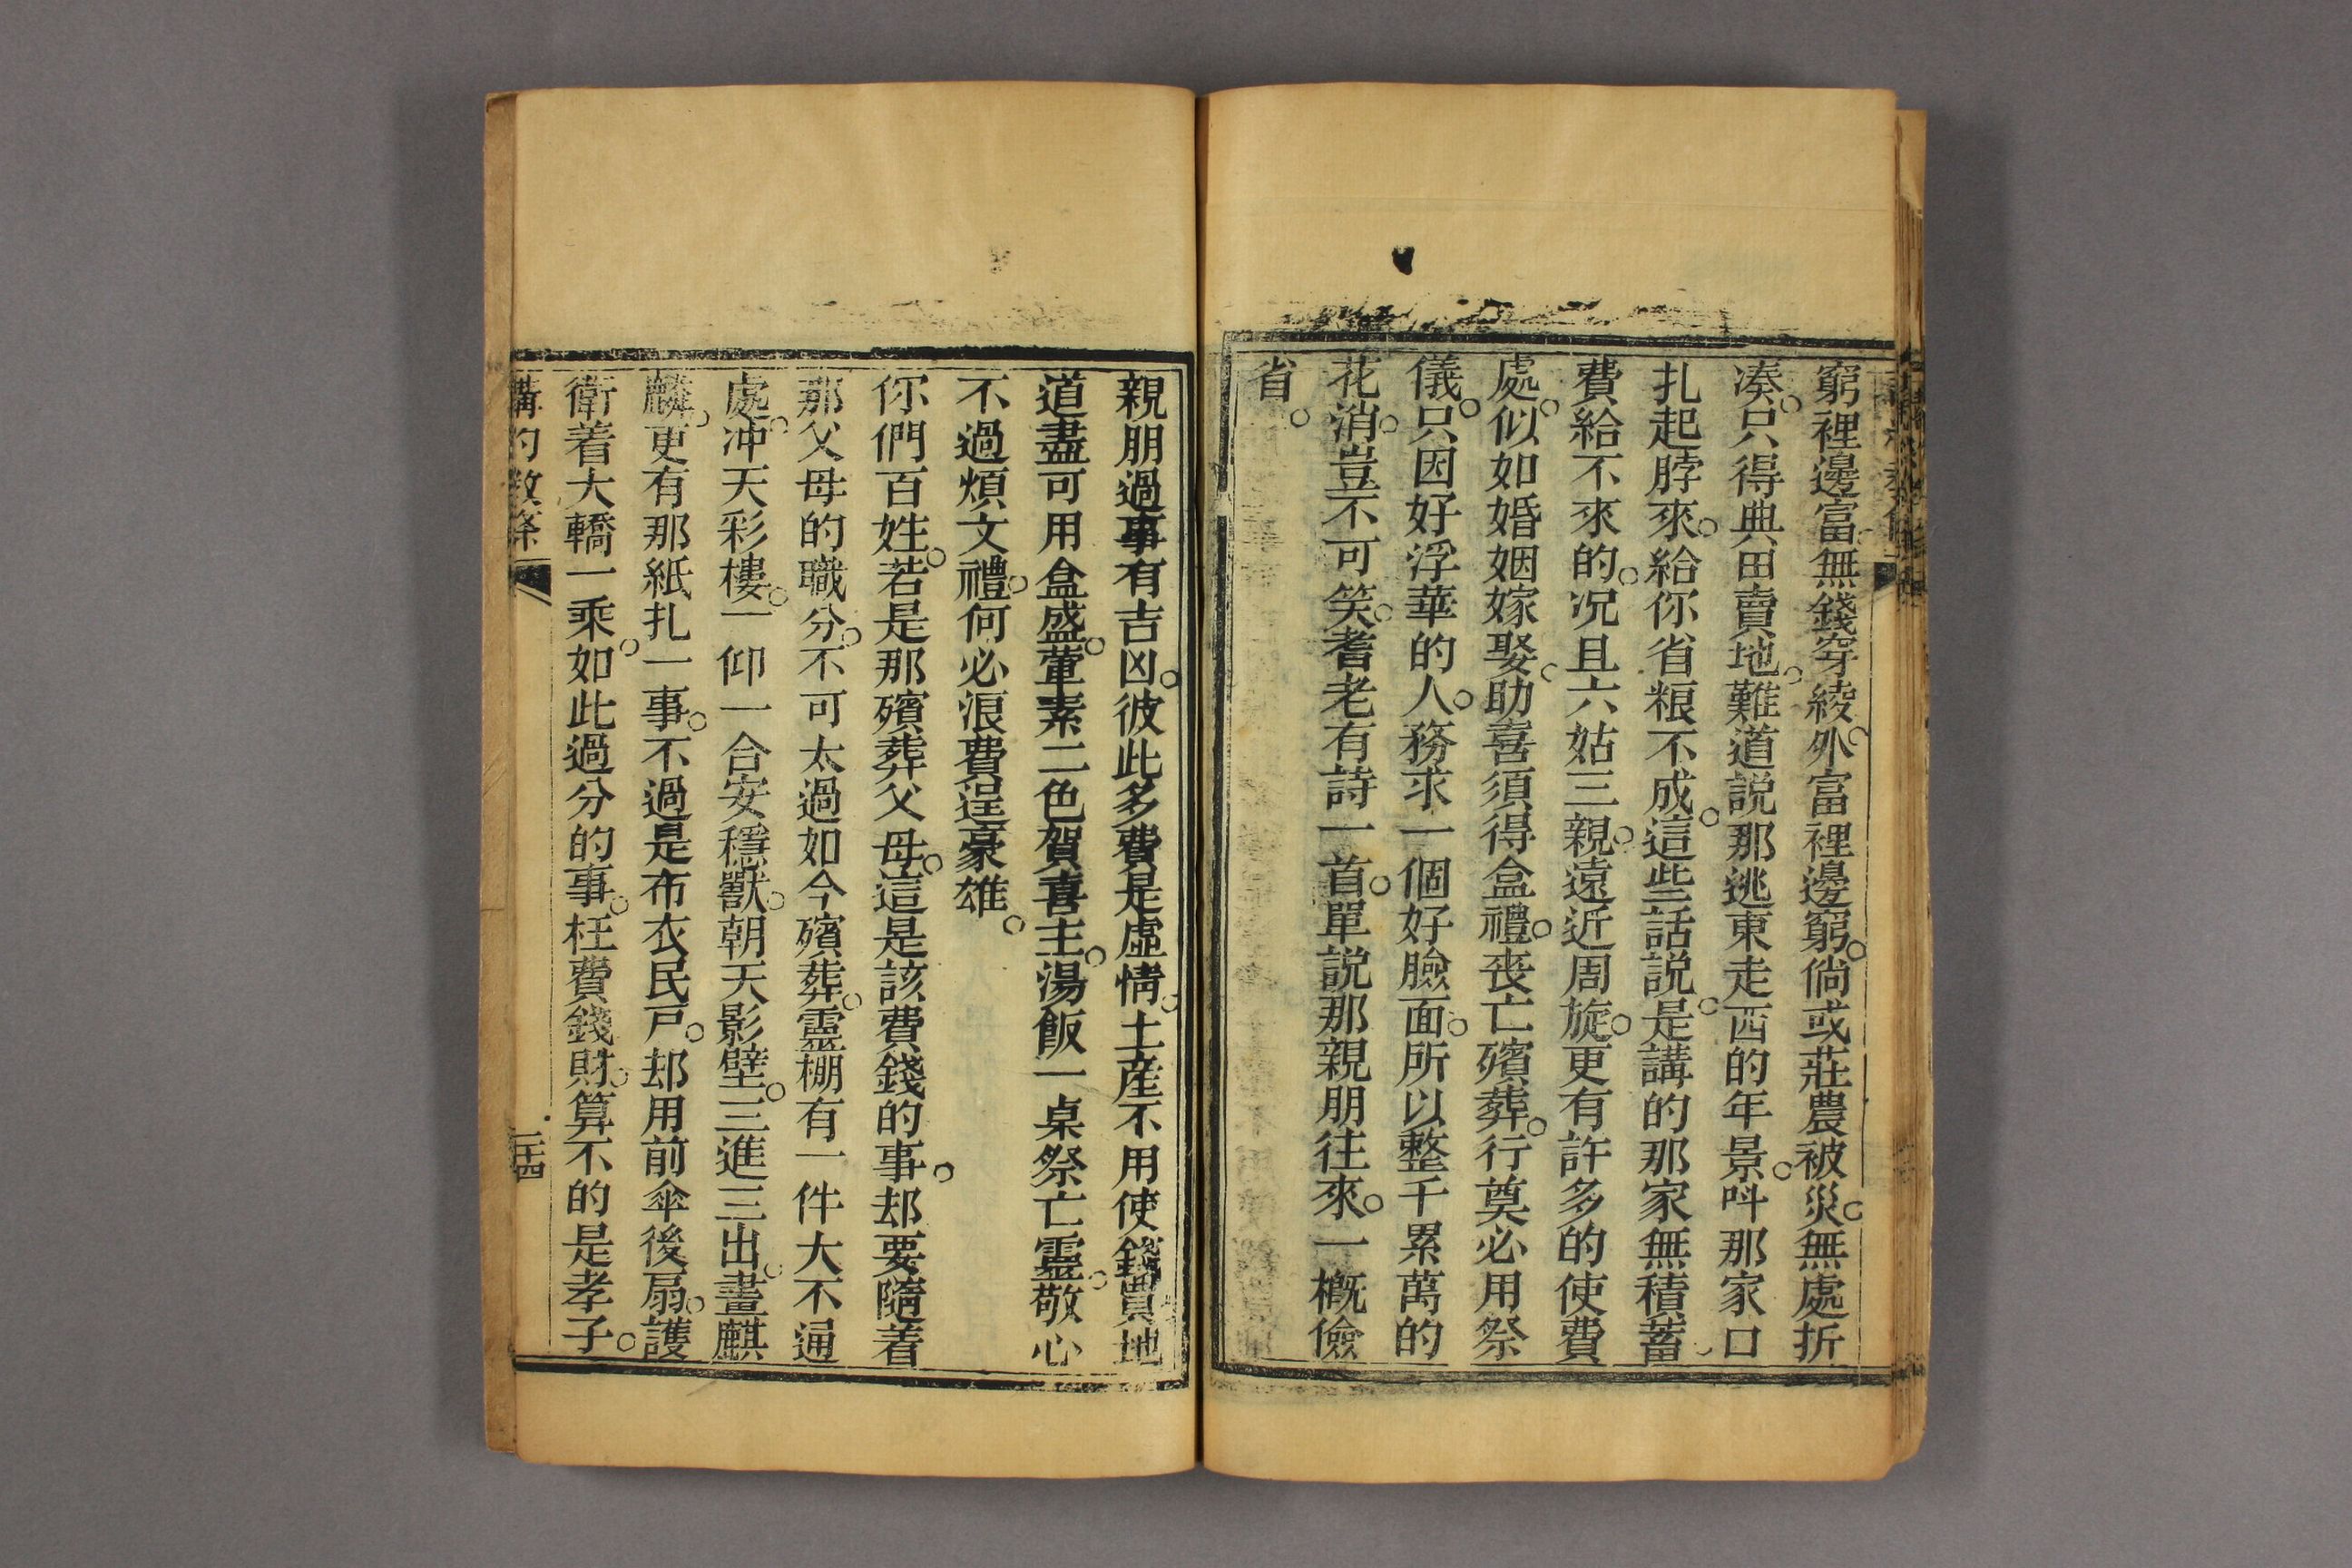 窮裡邊富無錢穿綾。外富裡邊窮。倘或莊農被災。無處折
凑。只得典田賣地。難道説那逃東走西的年景。呌那家口
扎起脖來。給你省粮不成。這些話説。是講的那家無積蓄。
費給不來的。况且六姑三親。遠近周旋。更有許多的使費
處。似如婚姻嫁娶。助喜須得盒禮。丧亡殯葬。行奠必用祭
儀。只因好浮華的人。務求一個好臉面。所以整千累萬的
花消。豈不可笑。耆老有詩一首。單説那親朋往來。一概儉
省。
親朋過事有吉凶。彼此多費是虛情。土産不用使錢買地
道盡可用盒盛。葷素二色賀喜主。湯飯一桌祭亡靈。敬心
不過煩文禮。何必浪費逞豪雄。
你們百姓。若是那殯葬父母。這是該費錢的事。却要隨着
那父母的職分。不可太過如今殯葬。靈棚有一件大不通
處。冲天彩樓。一仰一合安穩獸。朝天影壁。三進三出。畫麒
麟。更有那紙扎一事。不過是布衣民戸。却用前傘後扇。護
衛着大轎一乘。如此過分的事。枉費錢財。算不的是孝子。
講約敎條
二十四